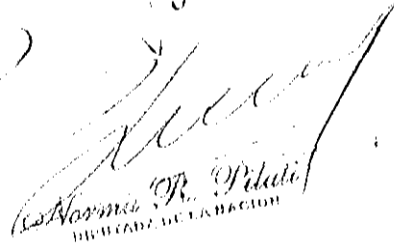 Norma R. Pilati
DIPUTADA DE LA NACION